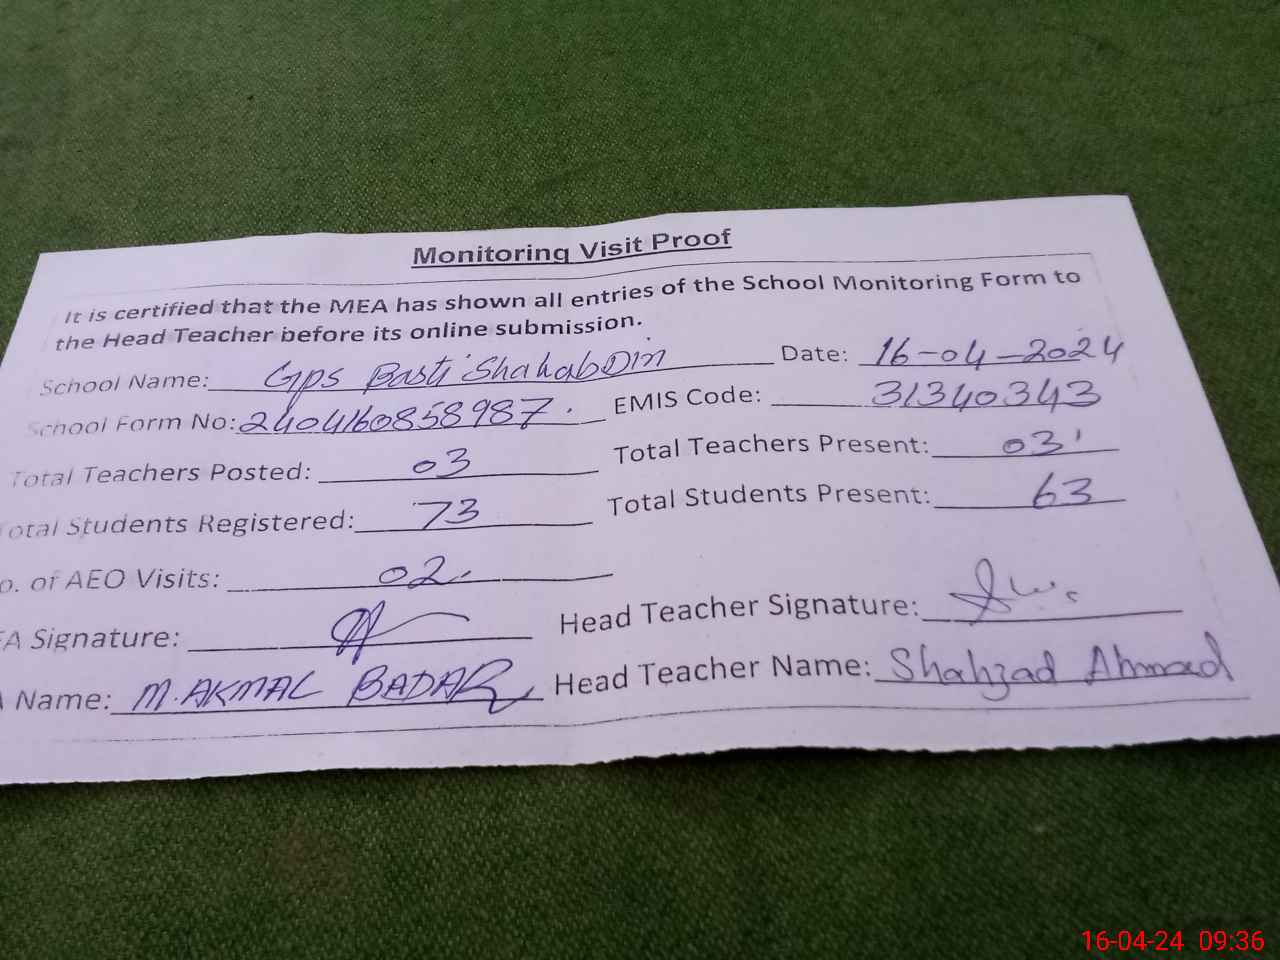 Monitoring Visit Proof
It is certified that the MEA has shown all entries of the School Monitoring Form to
the Head Teacher before its online submission.
School Name: Gps Basti ShahabDin Date: 16-04-2024
School Form No: 240416085898​7. EMIS Code: 31340343
Total Teachers Posted: 03 Total Teachers Present: 03
Total Students Registered: 73 Total Students Present: 63
o. of AEO Visits: 02. 
EA Signature: Head Teacher Signature:
A Name: M. AKMAL BADAR Head Teacher Name: Shahzad Ahmad
16-04-24 09:36